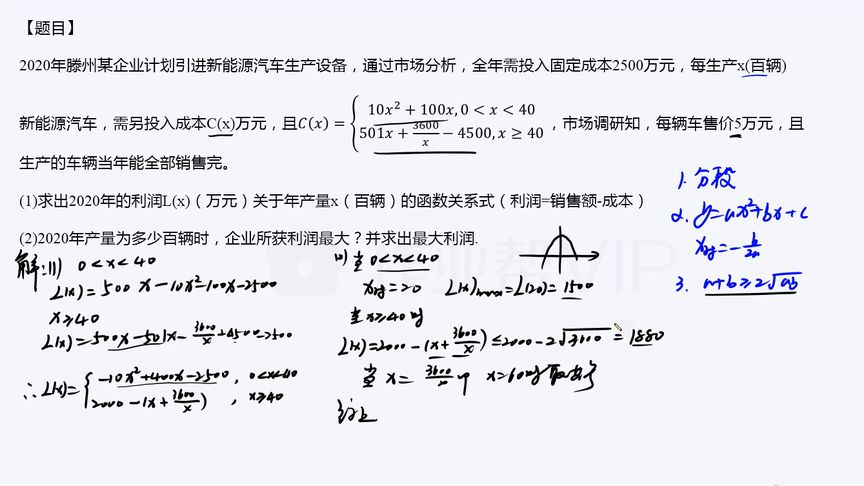 【题目】
2020年滕州某企业计划引进新能源汽车生产设备，通过市场分析，全年需投入固定成本2500万元，每生产x(百辆)
新能源汽车，需另投入成本C(x)万元，且C(x)={10x²+100x,0<x<40
501x+3600/x−4500,x≥40，市场调研知，每辆车售价5万元，且
生产的车辆当年能全部销售完。
(1)求出2020年的利润L(x)（万元）关于年产量x（百辆）的函数关系式（利润=销售额-成本）
(2)2020年产量为多少百辆时，企业所获利润最大？并求出最大利润.
解:(1) 0<x<40
L(x)=500x-10x²-100x-2500
x≥40
L(x)=500x-501x-3600/x+4500-2500
∴L(x)={-10x²+400x-2500, 0<x<40
2000-(x+3600/x), x≥40
(2)当0<x<40
x对=20 L(x)max=L(20)=1500
当x≥40时
L(x)=2000-(x+3600/x)≤2000-2√3600=1880
当x=3600/x即x=60时取等号
综上
1.分段
2.y=ax²+bx+c
x对=-b/2a
3. a+b≥2√ab